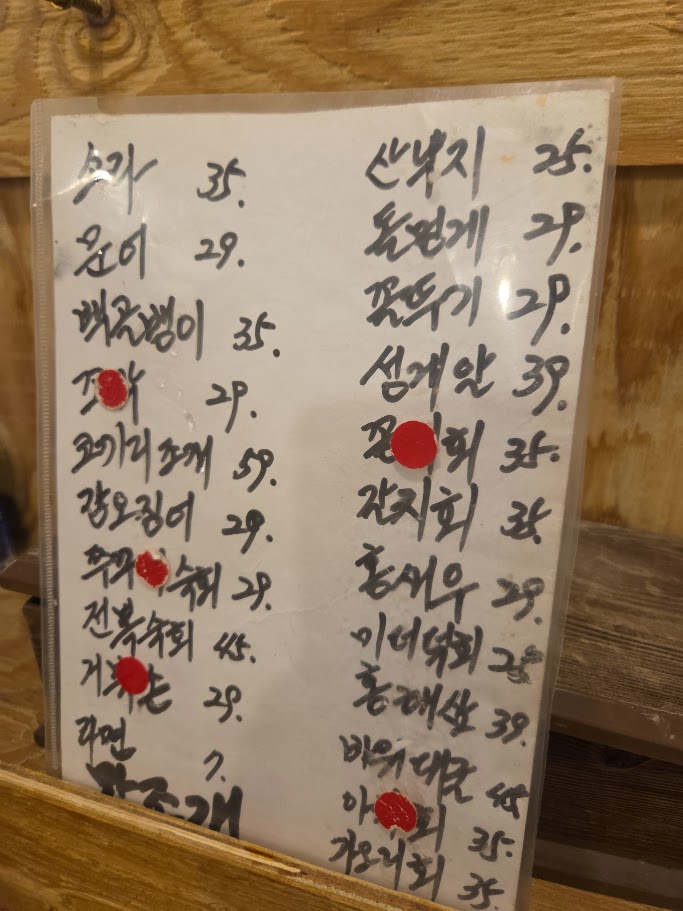 소라 35.
문어 29.
백골뱅이 35.
29.
코끼리조개 59.
갑오징어 29.
숙회 29.
전복숙회 45.
29.
라면 7.
산낙지 25.
돌멍게 29.
꼴뚜기 29.
성게알 39.
회 35.
갈치회 35.
홍새우 29.
미더덕회 25
홍해삼 39.
바위대굴 45
회 35.
가오리회 35.